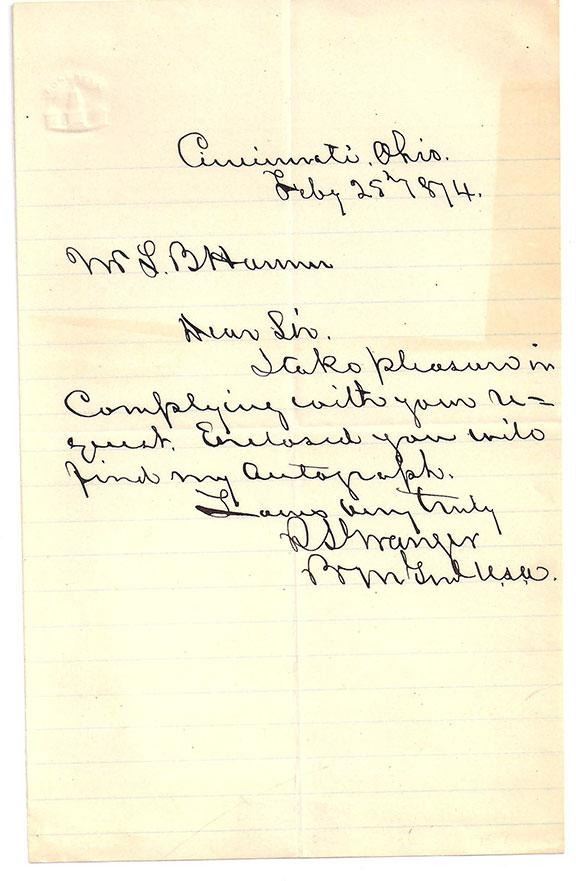 Cincinnati, Ohio.
Feby 25th 1874.
Mr L. B Harmer
Dear Sir.
I take pleasure in
Complying with your re=
quest. Enclosed you will
find my Autograph.
Yours very truly
R S Granger
Bv M Genl U.S.A.